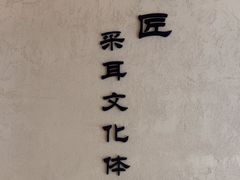 匠
采耳文化体